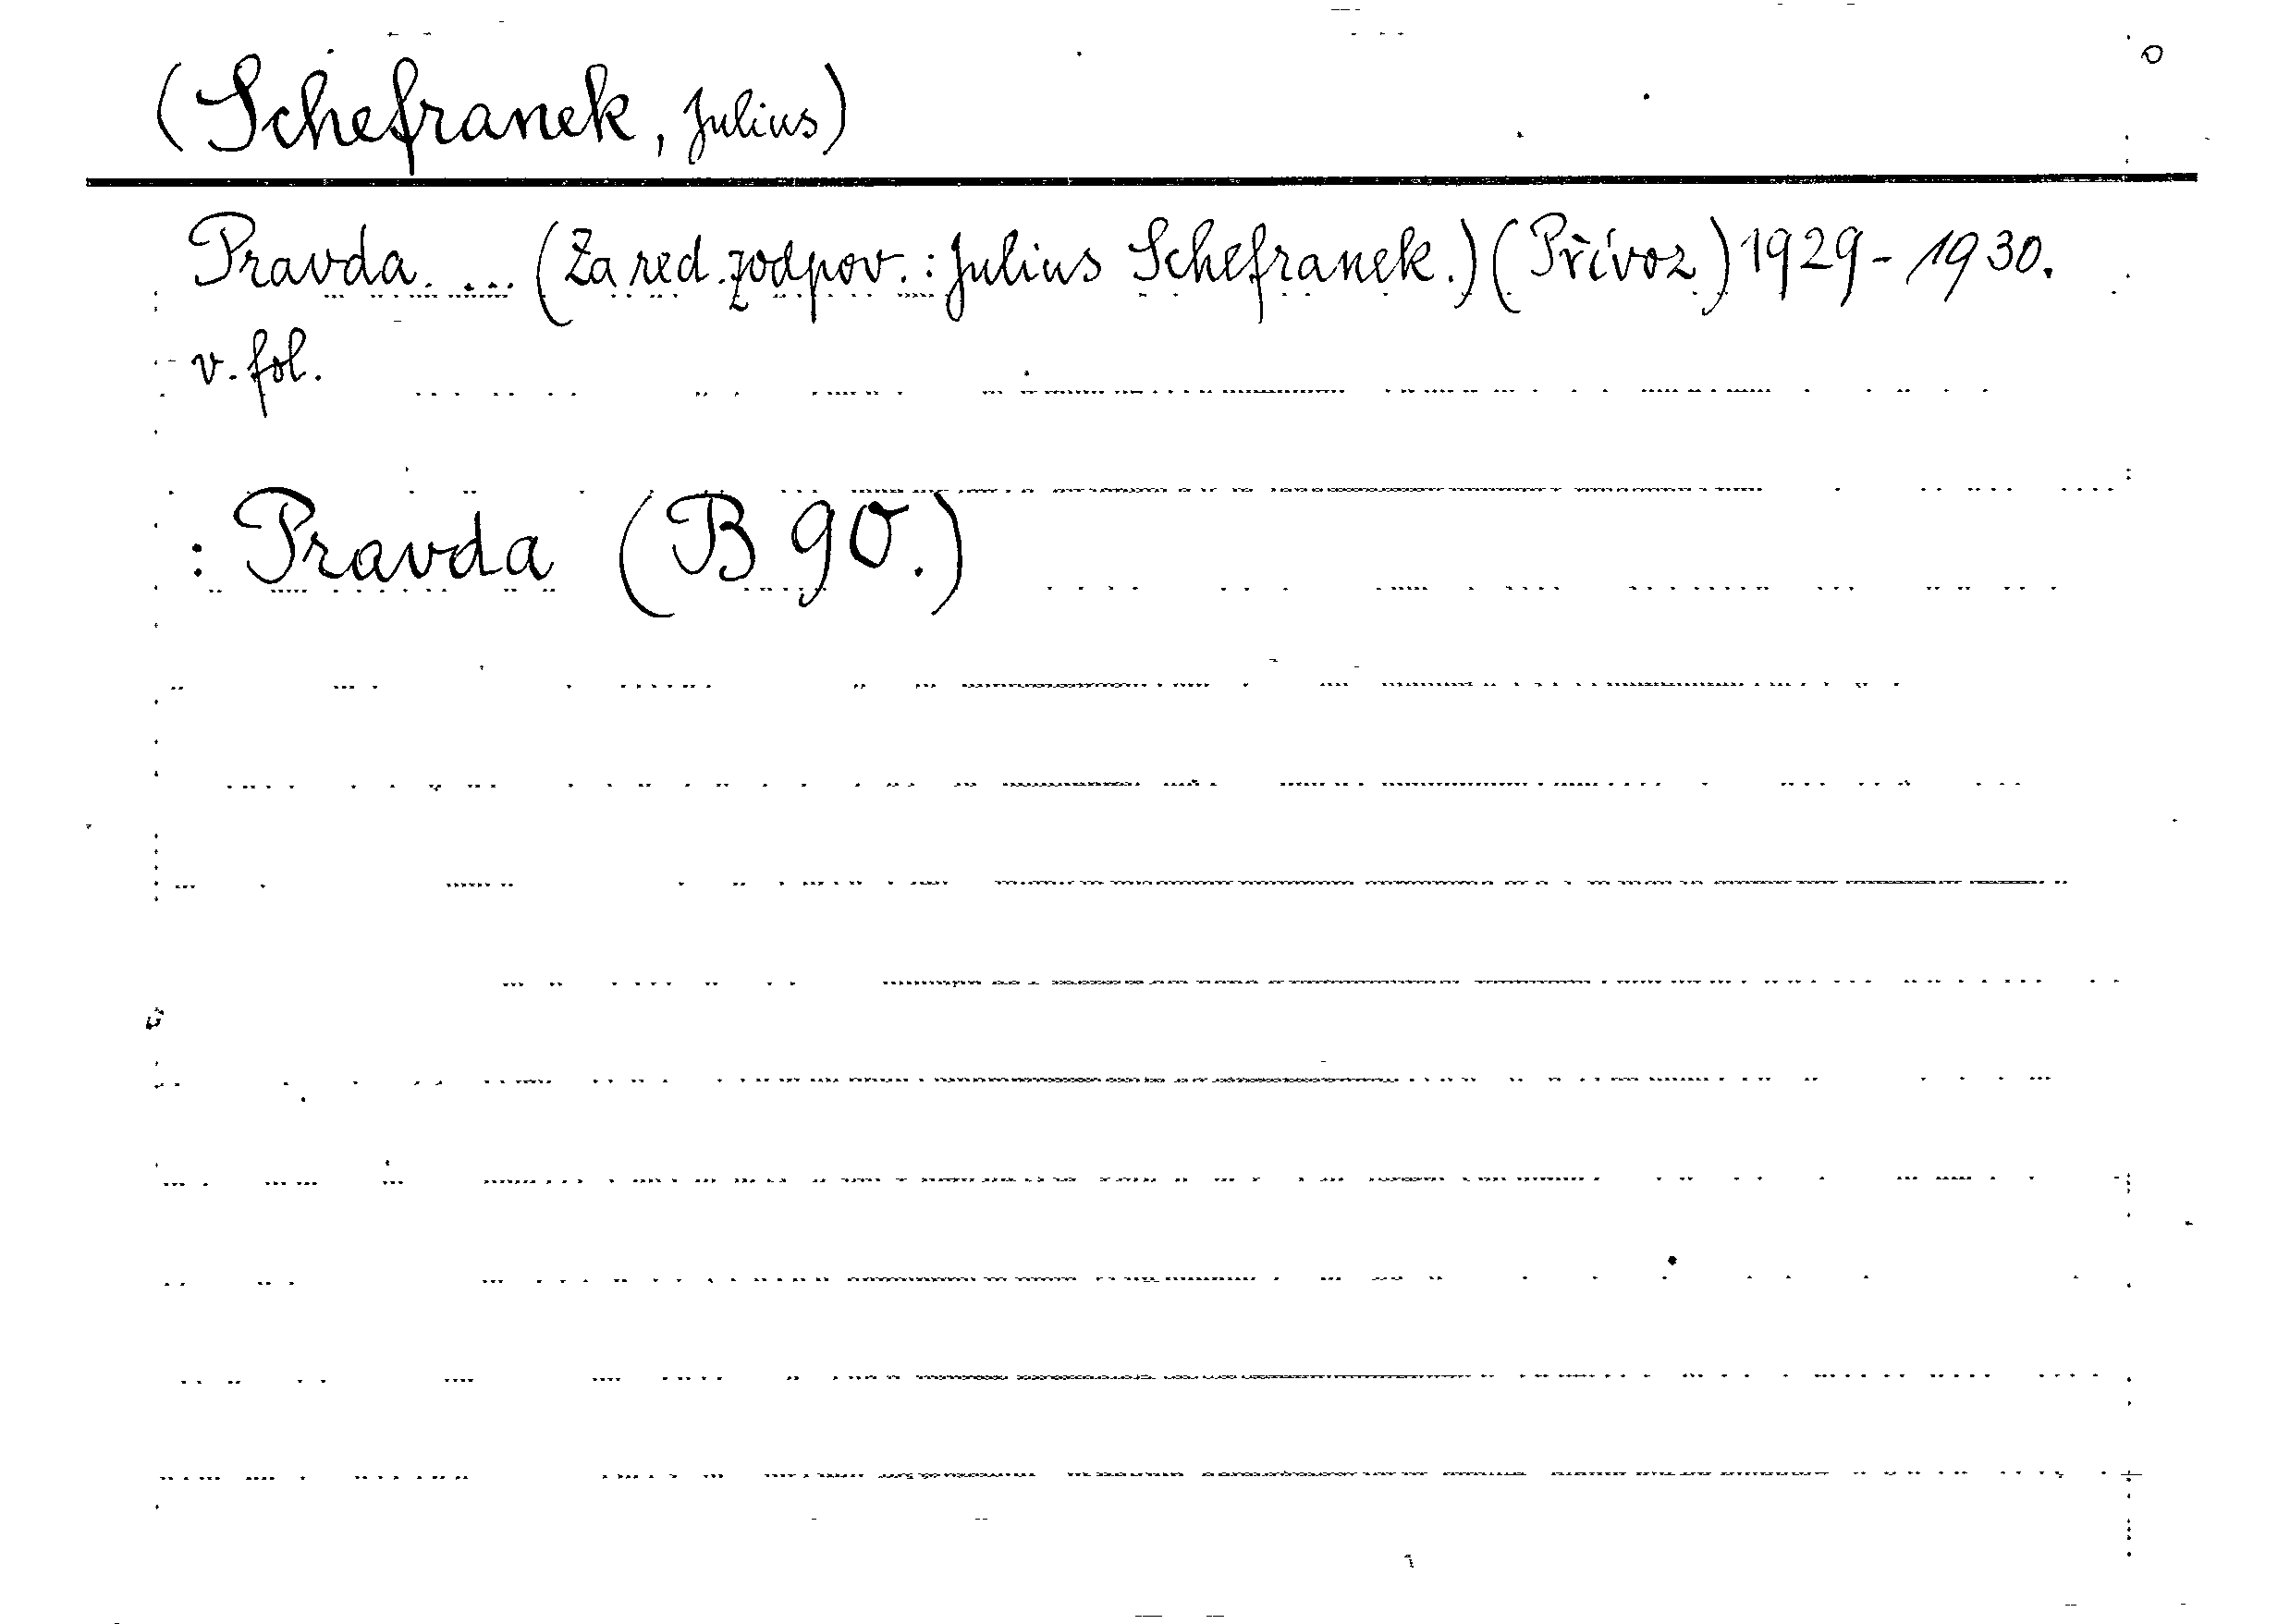 (Schefranek, Julius)
Pravda. ... (Za red. zodpov.: Julius Schefranek.) (Přívoz) 1929 - 1930.
v. fol.
: Pravda (B 90.)